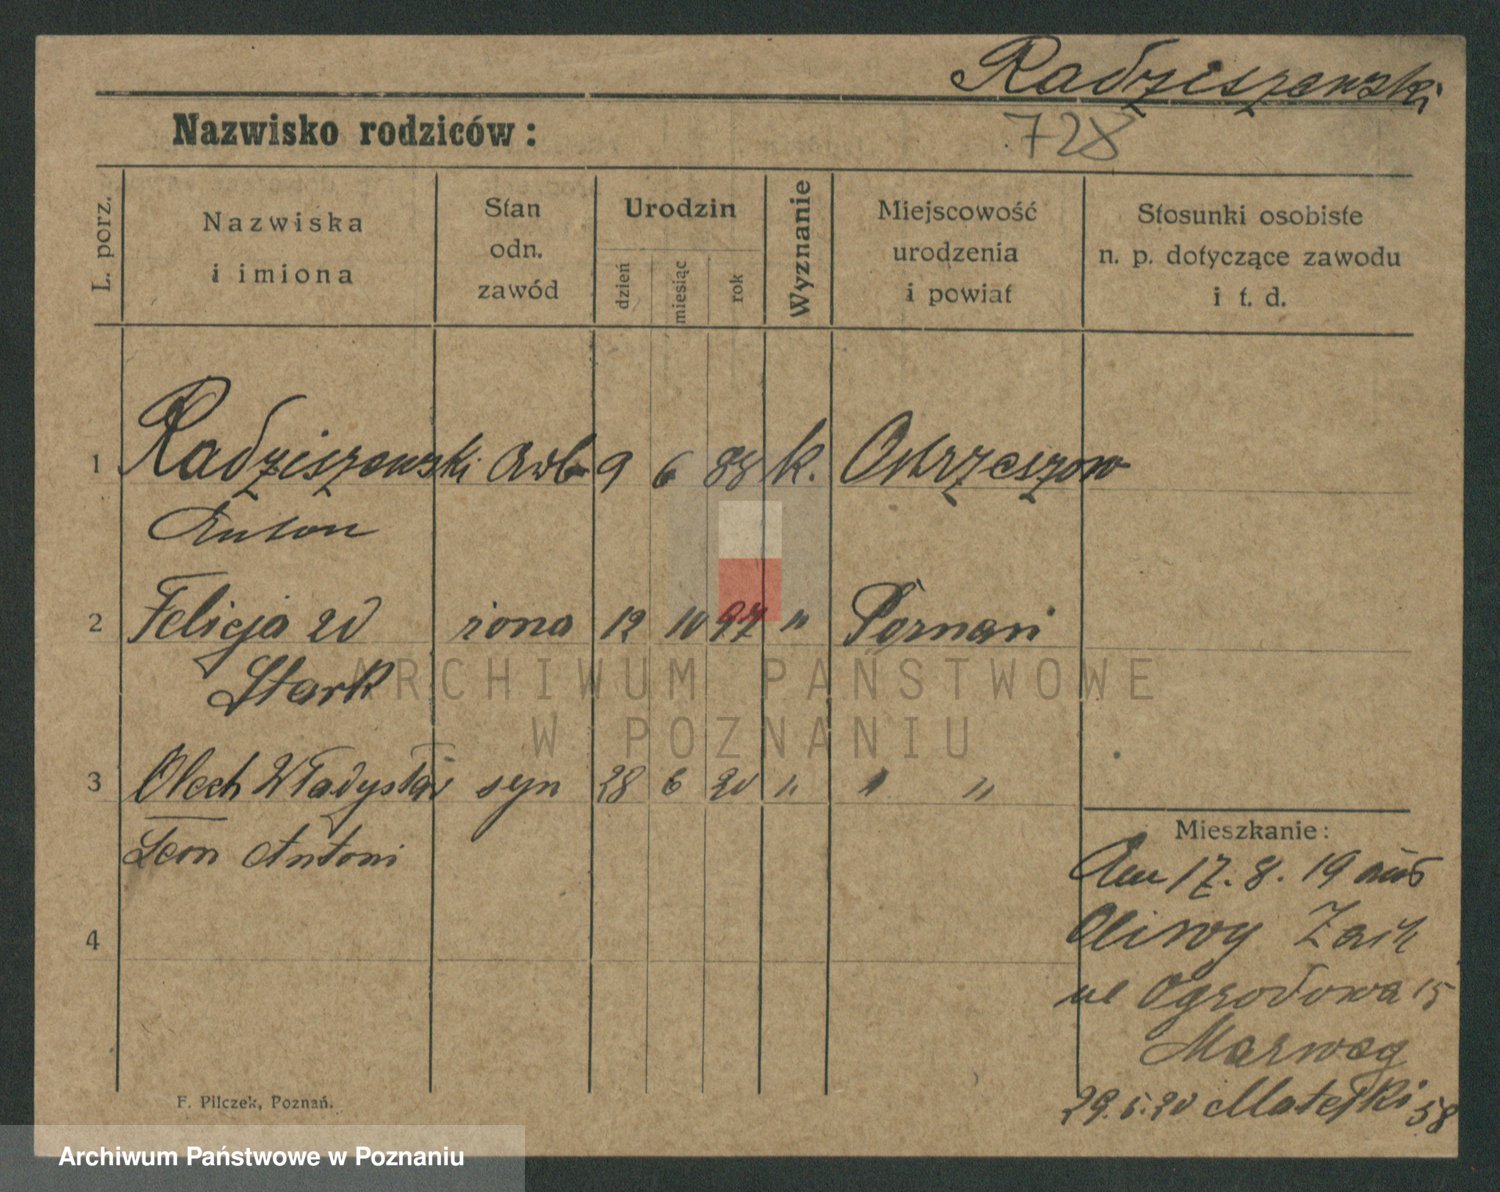 Radziszewski
Nazwisko rodziców:
728
L. porz.
Nazwiska
i imiona
Stan
odn.
zawód
Urodzin
dzień
miesiąc
rok
Wyznanie
Miejscowość
urodzenia
i powiat
Stosunki osobiste
n. p. dotyczące zawodu
i t. d.
1 Radziszewski Arb 9 6 88 k. Ostrzeszow
Anton
2 Felicja zd żona 12 10 97 " Poznań
Stark
3 Olech Władysław syn 28 6 20 " " "
Leon Antoni
4
Mieszkanie:
17. 8. 19 aus
ul Ogrodowa 15
29.5.20 Matejki 58
F. Pilczek, Poznań.
ARCHIWUM PAŃSTWOWE
W POZNANIU
Archiwum Państwowe w Poznaniu